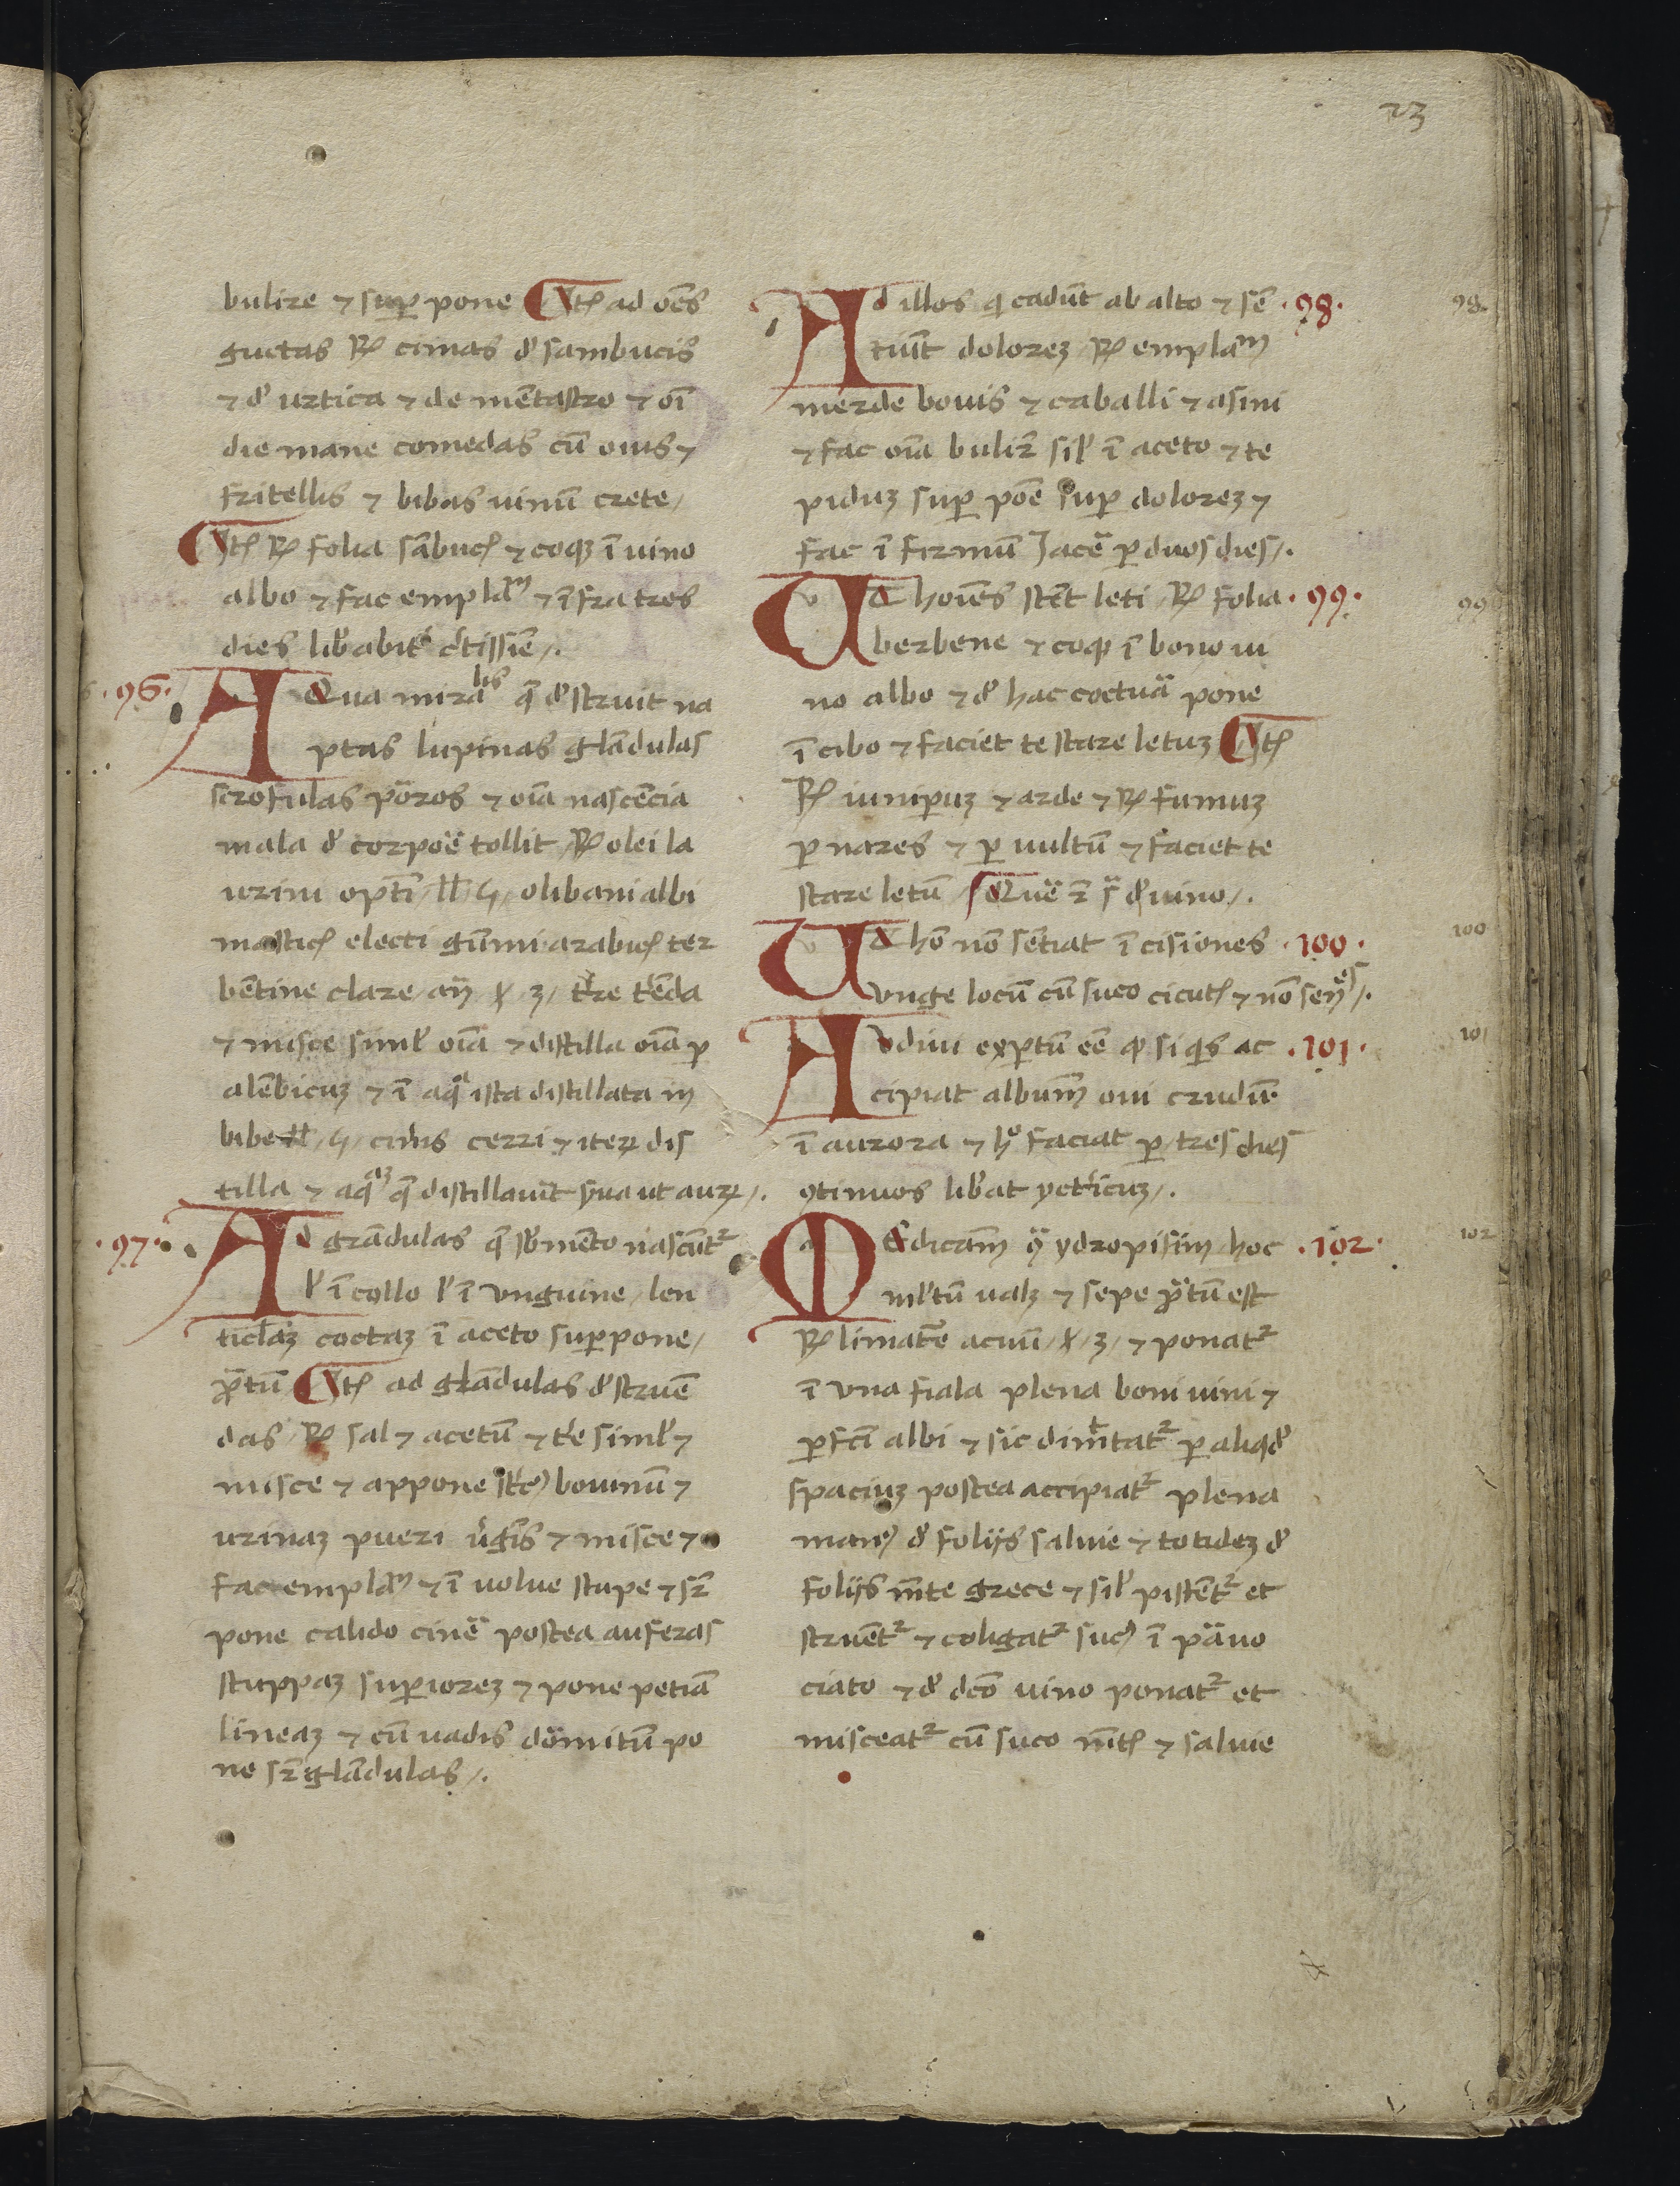 23
bulire ⁊ sup̱ pone ¶ Itē ad oēs
guttas ℞ cimas d' sambucis
⁊ d' urtica ⁊ de mētastro ⁊ oī
die mane comedas cū ouis ⁊
fritellis ⁊ bibas uinū crete /
¶ Itē ℞ folia sābucȩ ⁊ coqꝫ ī uino
albo ⁊ fac emplaͫ ⁊ īfra tres
dies lib'abit' c'tissīe /.
.96. AQua mirablis q̄ d'struit na
ptas lupinas glādulas
scrofulas poros ⁊ oīa nascēcia
mala d' corpoē tollit ℞ olei la
urini optī / ll / ҕ / olibani albi
masticȩ electi gūmi arabicȩ ter
bētine clare / an̄ / ꝫ / t're t'ēda
⁊ misce siml' oīa ⁊ distilla oīa ꝑ
alēbicuꝫ ⁊ ī aqͣ ista distillata ī
bibe ll / ҕ / cin'is cerri ⁊ iteꝝ dis
tilla ⁊ aqͣꝫ q̄ distillauīt s'ua ut auꝝ /.
.97. Ad grādulas q̄ sb' mēto nascūtᷣ
l' ī collo l' ī unguine / len
ticl'aꝫ coctaꝫ ī aceto supꝑone /
ꝓ̄tū ¶ Itē ad glādulas d'struē
das / ℞ sal ⁊ acetū ⁊ t'e siml' ⁊
misce ⁊ appone st'cꝰ bouinū ⁊
urinaꝫ pueri u'gīs ⁊ misce ⁊
fac emplaͫ ⁊ ī uolue stupe ⁊ sꝛ̄
pone calido cinē postea auferas
stuppaꝫ suꝑioreꝫ ⁊ pone petiā
lineaꝫ ⁊ cū uadis dōmitū po
ne sꝛ̄ glādulas /.
Ad illos q̄ cadūt ab alto ⁊ sē .98.
tiūt doloreꝫ ℞ emplaͫ
merde bouis ⁊ caballi ⁊ asini
⁊ fac oīa buliꝛ̄ sil' ī aceto ⁊ te
piduꝫ sup̱ poē sup̱ doloreꝫ ⁊
fac īfirmū Jacē ꝑ duos dies /.
Vt hoīes stēt leti ℞ folia .99.
berbene ⁊ coqꝫ ī bono ui
no albo ⁊ d' hac coctuā pone
ī cibo ⁊ faciet te stare letuꝫ ¶ Itē
℞ iuniꝑuꝫ ⁊ arde ⁊ ℞ fumuꝫ
ꝑ nares ⁊ ꝑ uultū ⁊ faciet te
stare letū / Quē ꝛ̄ s̄ d' uino /.
Vt hō nō sētiat ī cisiones .100.
unge locū cū suco cicutȩ ⁊ nō
Audiui exꝑtū eē ꝙ siqis ac .101.
cipiat albumͫ oui crudū
ī aurora ⁊ hͦ faciat ꝑ tres dies
ꝯtinuos lib'at ycteʳicuꝫ /.
MEdicam̄ ꝯͣ ydropisim hoc .102.
ml'tū ualꝫ ⁊ sepe ꝓ̄tū est
℞ limatʳe acuū / ꝫ / ⁊ ponatᷣ
ī una fiala plena boni uini ⁊
ꝑfcī albi ⁊ sic dimͭtatᷣ ꝑ aliqd'
spaciuꝫ postea accipiatᷣ plena
manꝰ d' folijs saluie ⁊ totideꝫ d'
folijs m̄te grece ⁊ sil' pistētᷣ et
struētᷣ ⁊ coligatᷣ sucꝰ ī pāuo
ciato ⁊ d' dc̄o uino ponatᷣ et
misceatᷣ cū suco m̄tȩ ⁊ saluie
98.
99
100
101
102